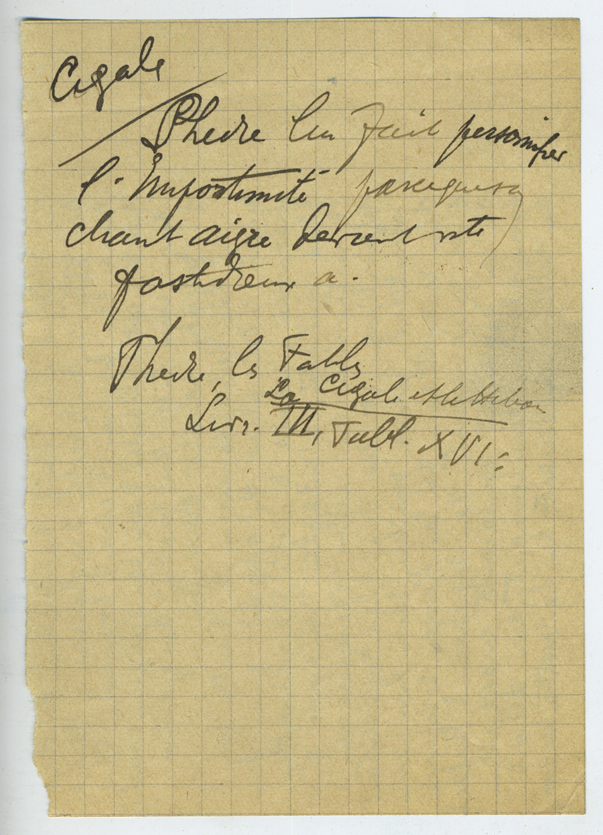 Cigale
Phedre lui fait personnifier
l'Importunité parceque son
chant aigre devient vite
fastidieux
Phedre, les Fables
La Cigale et le Hibou
Livr. III, Fabl. XVI.